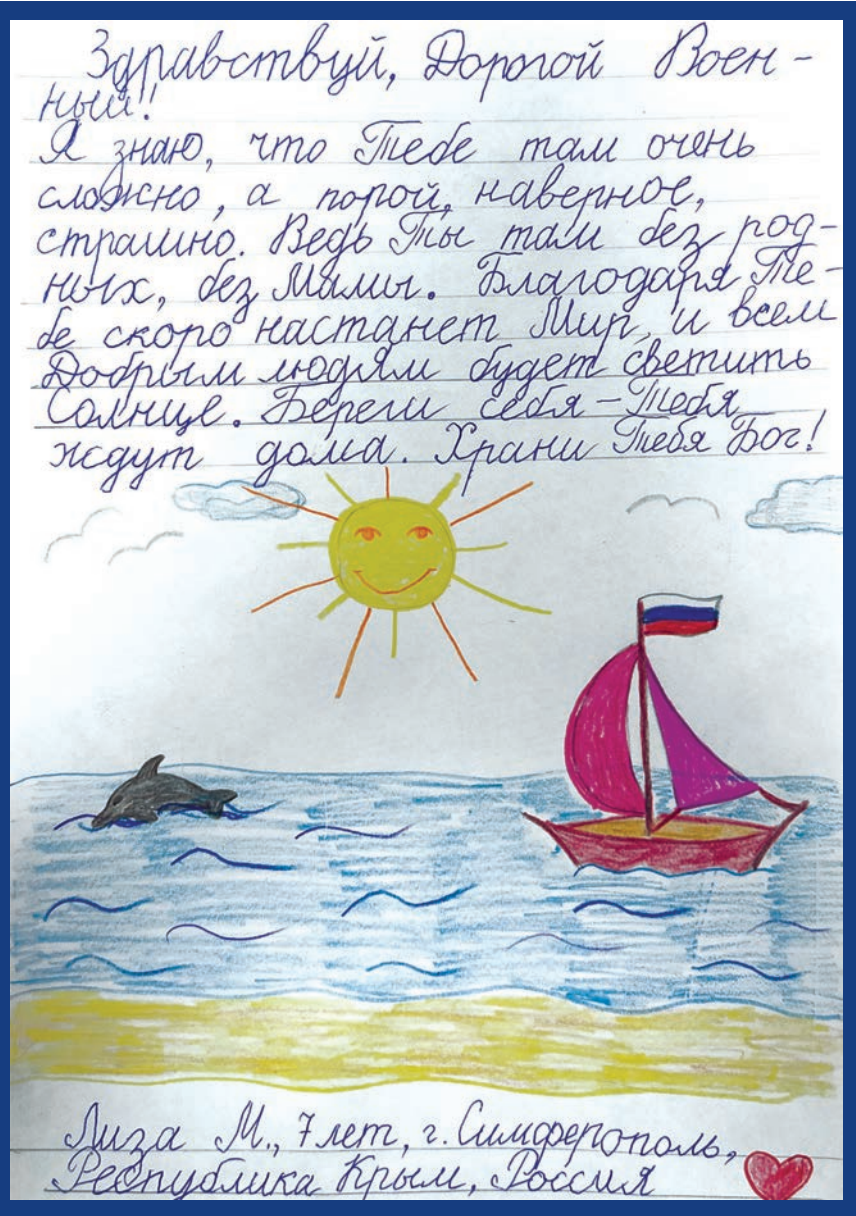 Здравствуй, Дорогой Воен-
ный!!
Я знаю, что Тебе там очень
сложно, а порой, наверное,
страшно. Ведь Ты там без род-
ных, без Мамы. Благодаря Те-
бе скоро настанет Мир, и всем
Добрым людям будет светить
Солнце. Береги себя – Тебя
ждут дома. Храни Тебя Бог!
Лиза М., 7 лет, г. Симферополь,
Республика Крым, Россия